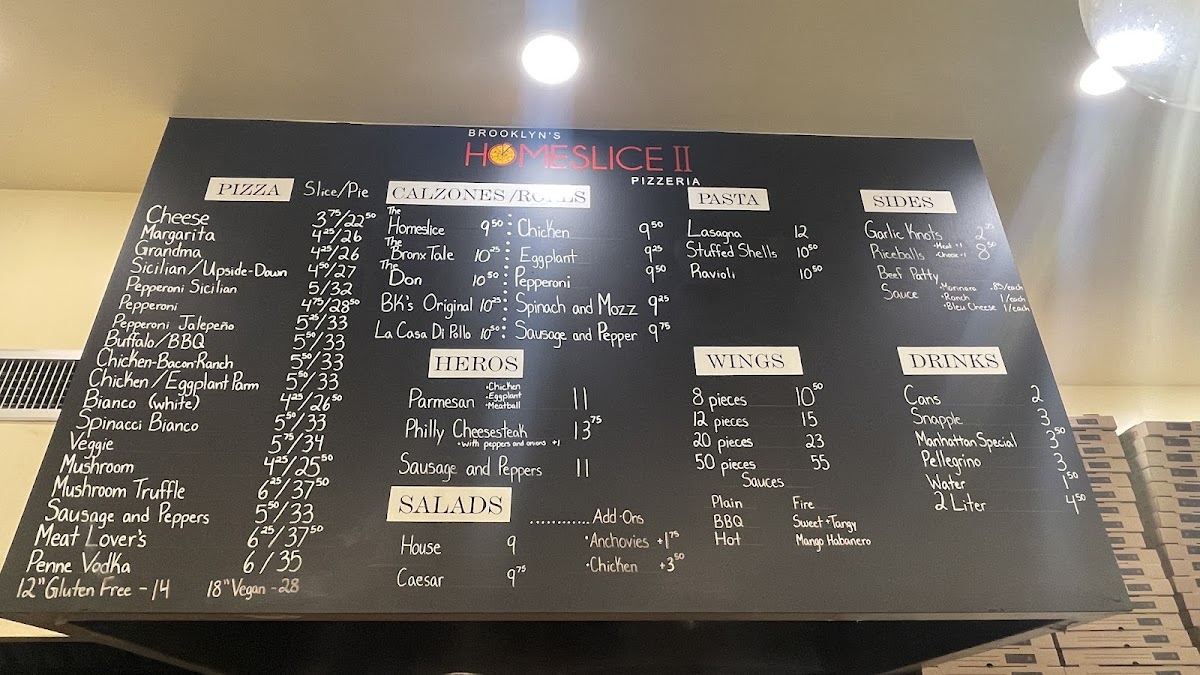 BROOKLYN'S
HOMESLICE II
PIZZERIA
PIZZA Slice/Pie
Cheese 3.75/22.50
Margarita 4.25/26
Grandma 4.25/26
Sicilian/Upside-Down 4.50/27
Pepperoni Sicilian 5/32
Pepperoni 4.75/28.50
Pepperoni Jalepeño 5.25/33
Buffalo/BBQ 5.50/33
Chicken-Bacon Ranch 5.50/33
Chicken/Eggplant Parm 5.50/33
Bianco (white) 4.25/26.50
Spinacci Bianco 5.50/33
Veggie 5.75/34
Mushroom 4.25/25.50
Mushroom Truffle 6.25/37.50
Sausage and Peppers 5.50/33
Meat Lover's 6.25/37.50
Penne Vodka 6/35
12" Gluten Free - 14 18" Vegan - 28
CALZONES/ROLLS
The Homeslice 9.50
The Bronx Tale 10.25
The Don 10.50
BK's Original 10.25
La Casa Di Pollo 10.50
Chicken 9.50
Eggplant 9.25
Pepperoni 9.50
Spinach and Mozz 9.25
Sausage and Pepper 9.75
HEROS
Parmesan •Chicken •Eggplant •Meatball 11
Philly Cheesesteak 13.75
•with peppers and onions +1
Sausage and Peppers 11
SALADS
House 9
Caesar 9.75
............Add-Ons
•Anchovies +1.75
•Chicken +3.50
PASTA
Lasagna 12
Stuffed Shells 10.50
Ravioli 10.50
WINGS
8 pieces 10.50
12 pieces 15
20 pieces 23
50 pieces 55
Sauces
Plain Fire
BBQ Sweet+Tangy
Hot Mango Habanero
SIDES
Garlic Knots
Riceballs •Meat +1 •Cheese +1 8.50
Beef Patty
Sauce •Marinara .85/each
•Ranch 1/each
•Bleu Cheese 1/each
DRINKS
Cans 2
Snapple 3
Manhattan Special 3.50
Pellegrino 3
Water 1.50
2 Liter 4.50